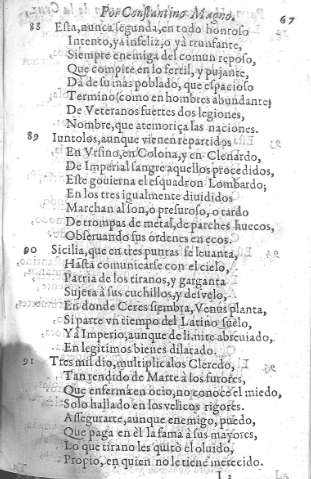 Por Constantino Magno. 67
88 Esta, nunca segunda, en todo honroso
Intento, yà infeliz, o yà triunfante,
Siempre enemiga del comun reposo,
Que compite en lo fertil, y pujante,
Dà de su màs poblado, que espacioso
Termino (como en hombres abundante)
De Veteranos fuertes dos legiones,
Nombre, que atemoriça las naciones.
89 Iuntolos, aunque vienen repartidos
En Vrsino, en Colona, y en Clenardo,
De Imperial sangre aquellos procedidos,
Este gouierna el esquadron Lombardo;
En los tres igualmente diuididos
Marchan al son, o presuroso, o tardo
De trompas de metal, de parches huecos,
Obseruando sus ordenes en ecos.
90 Sicilia, que en tres puntas se leuanta,
Hasta comunicarse con el cielo,
Patria de los tiranos, y garganta
Sujeta à sus cuchillos, y desvelo,
En donde Ceres siembra, Venus planta,
Si parte vn tiempo del Latino suelo,
Yà Imperio, aunque de limite abreuiado,
En legitimos bienes dilatado.
91 Tres mil dio, multiplicalos Cleredo,
Tan rendido de Marte à los furores,
Que enferma en ocio, no conoce el miedo,
Solo hallado en los velicos rigores.
Assegurarte, aunque enemigo, puedo,
Que paga en èl la fama à sus mayores,
Lo que tirano les quitò el oluido,
Propio, en quien no le tiene merecido.
I 3 La